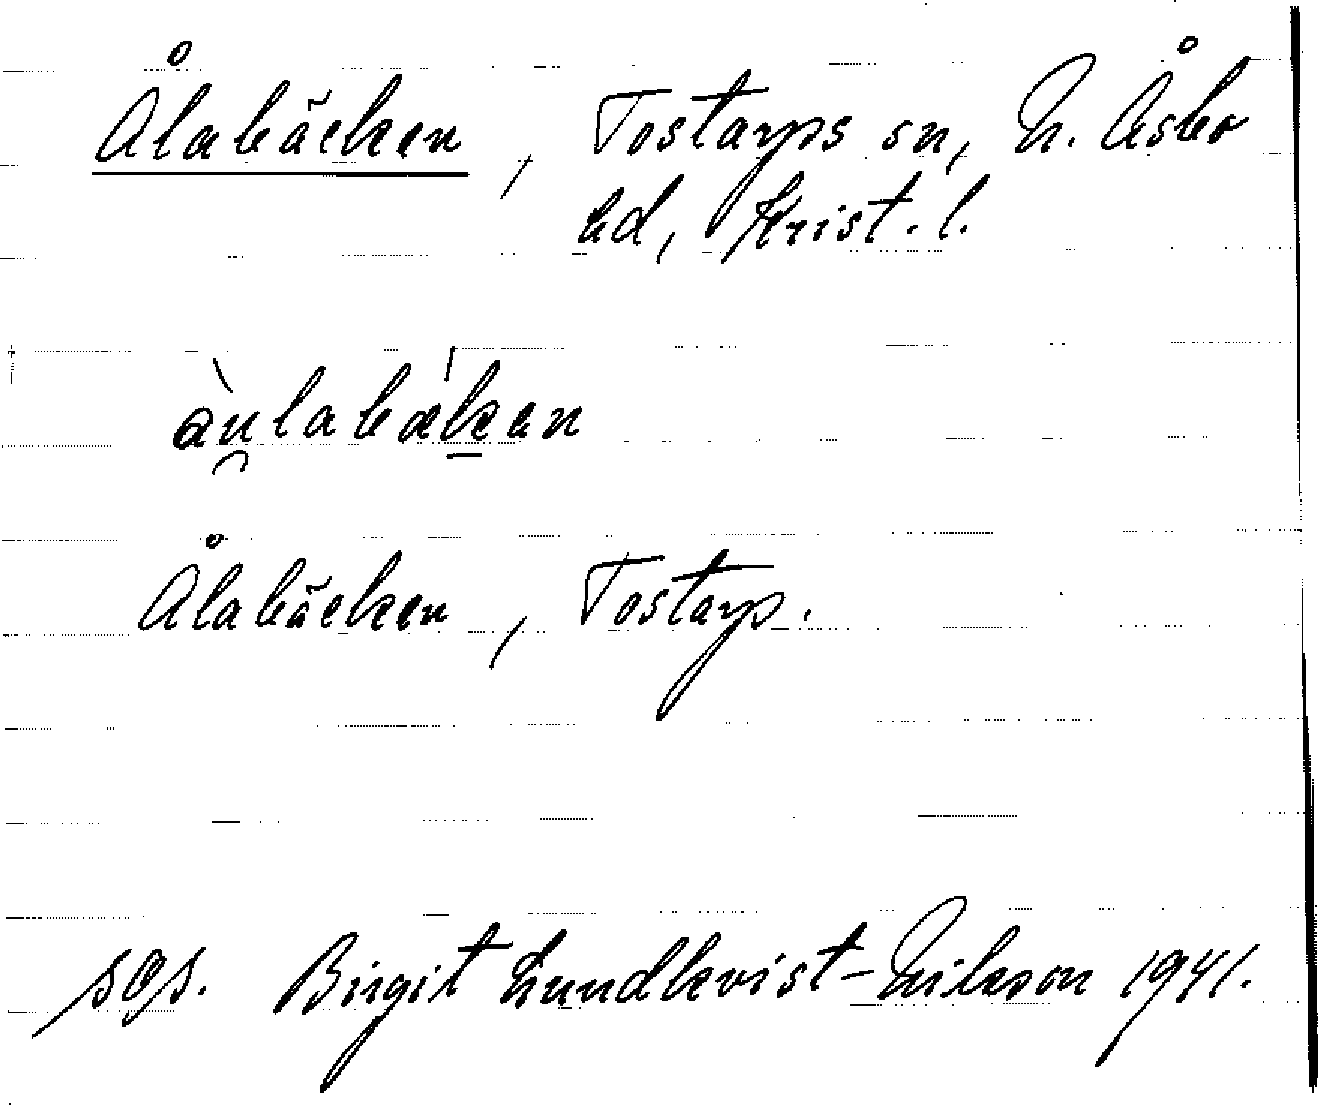 Ålabäcken, Tostarps sn, N. Åsbo
hd, Krist. l.
àu̯labæ'k̲en
Ålabäcken, Tostarp.
sgs. Birgit Lundkvist-Nilsson 1941.